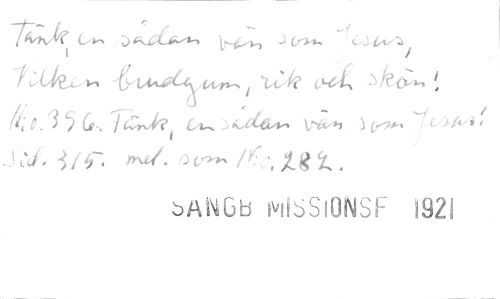 Tänk, en sådan vän som Jesus,
Vilken brudgum, rik och skön!
No. 396. Tänk, en sådan vän som Jesus!
Sid. 315. mel. som No. 282.
SANGB MISSIONSF 1921